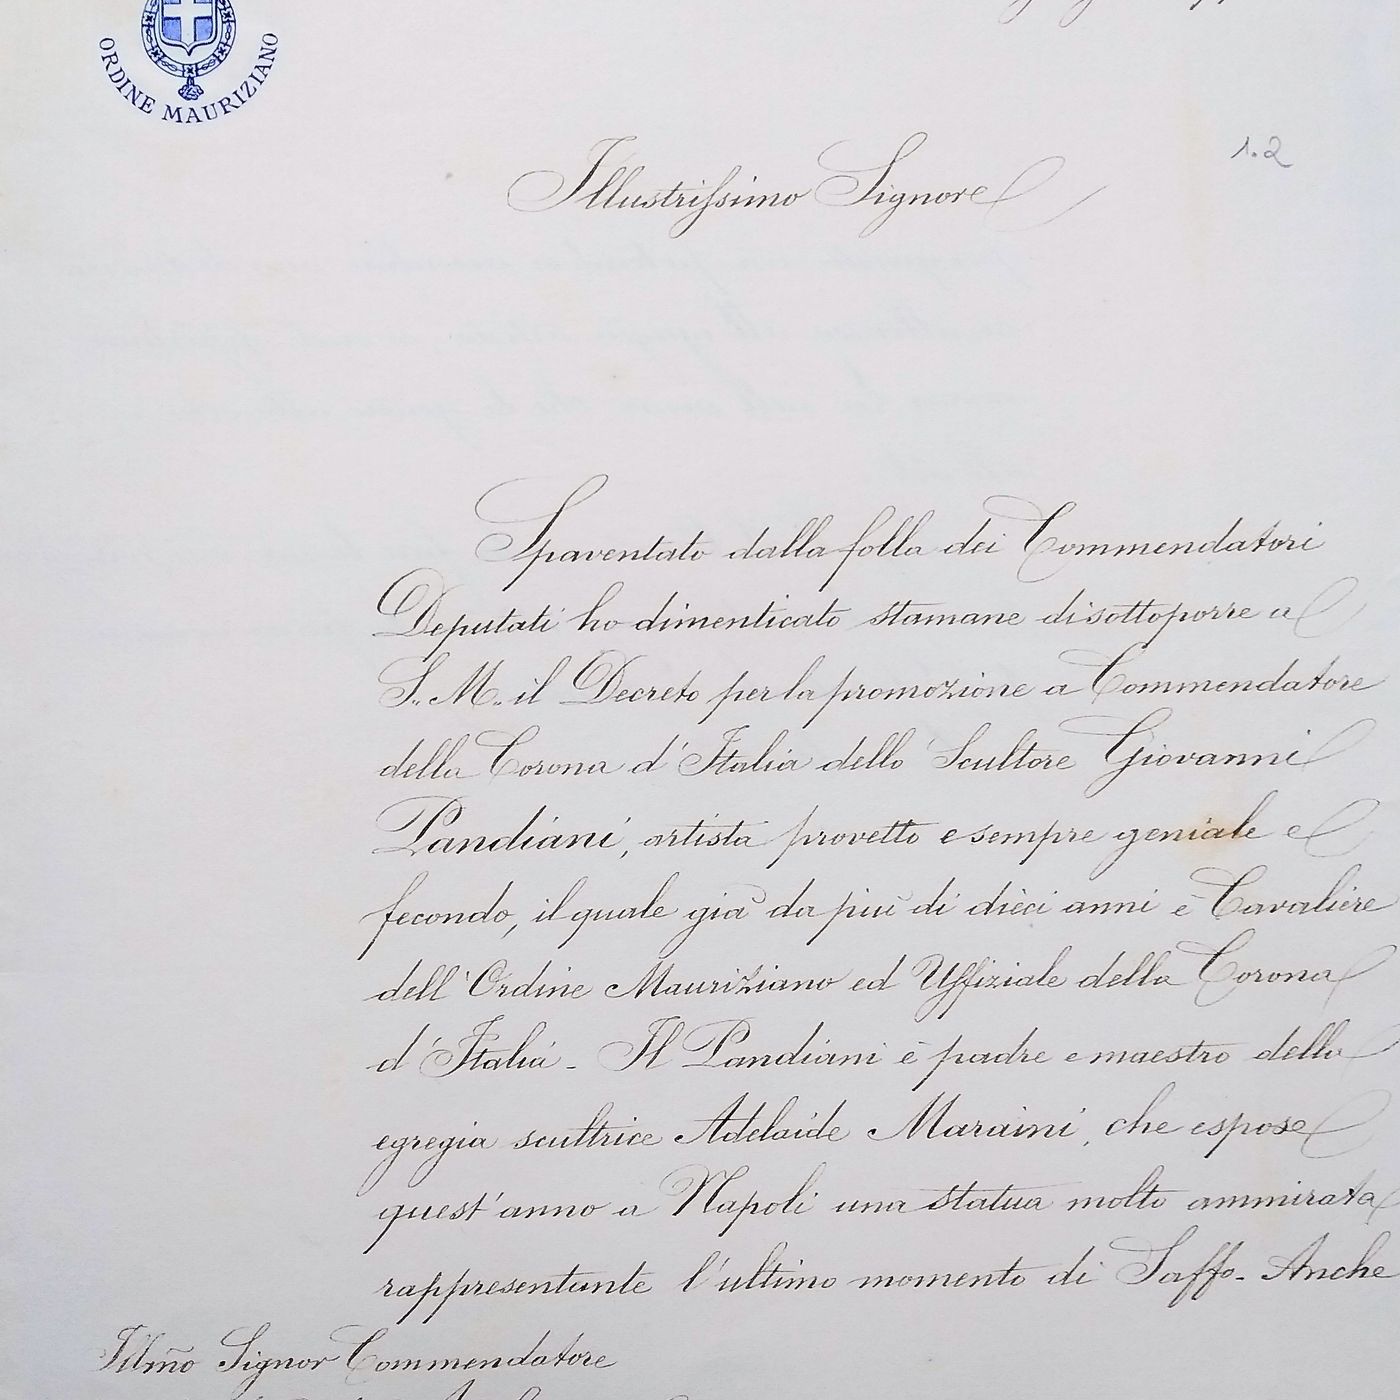 ORDINE MAURIZIANO
1.2
Illustrissimo Signore
Spaventato dalla folla dei Commendatori
Deputati ho dimenticato stamane di sottoporre a
S. M. il Decreto per la promozione a Commendatore
della Corona d'Italia dello Scultore Giovanni
Pandiani, artista provetto e sempre geniale e
fecondo, il quale già da più di dieci anni è Cavaliere
dell'Ordine Mauriziano ed Uffiziale della Corona
d'Italia - Il Pandiani è padre e maestro della
egregia scultrice Adelaide Maraini, che espose
quest'anno a Napoli una statua molto ammirata
rappresentante l'ultimo momento di Saffo - Anche
Illmo Signor Commendatore